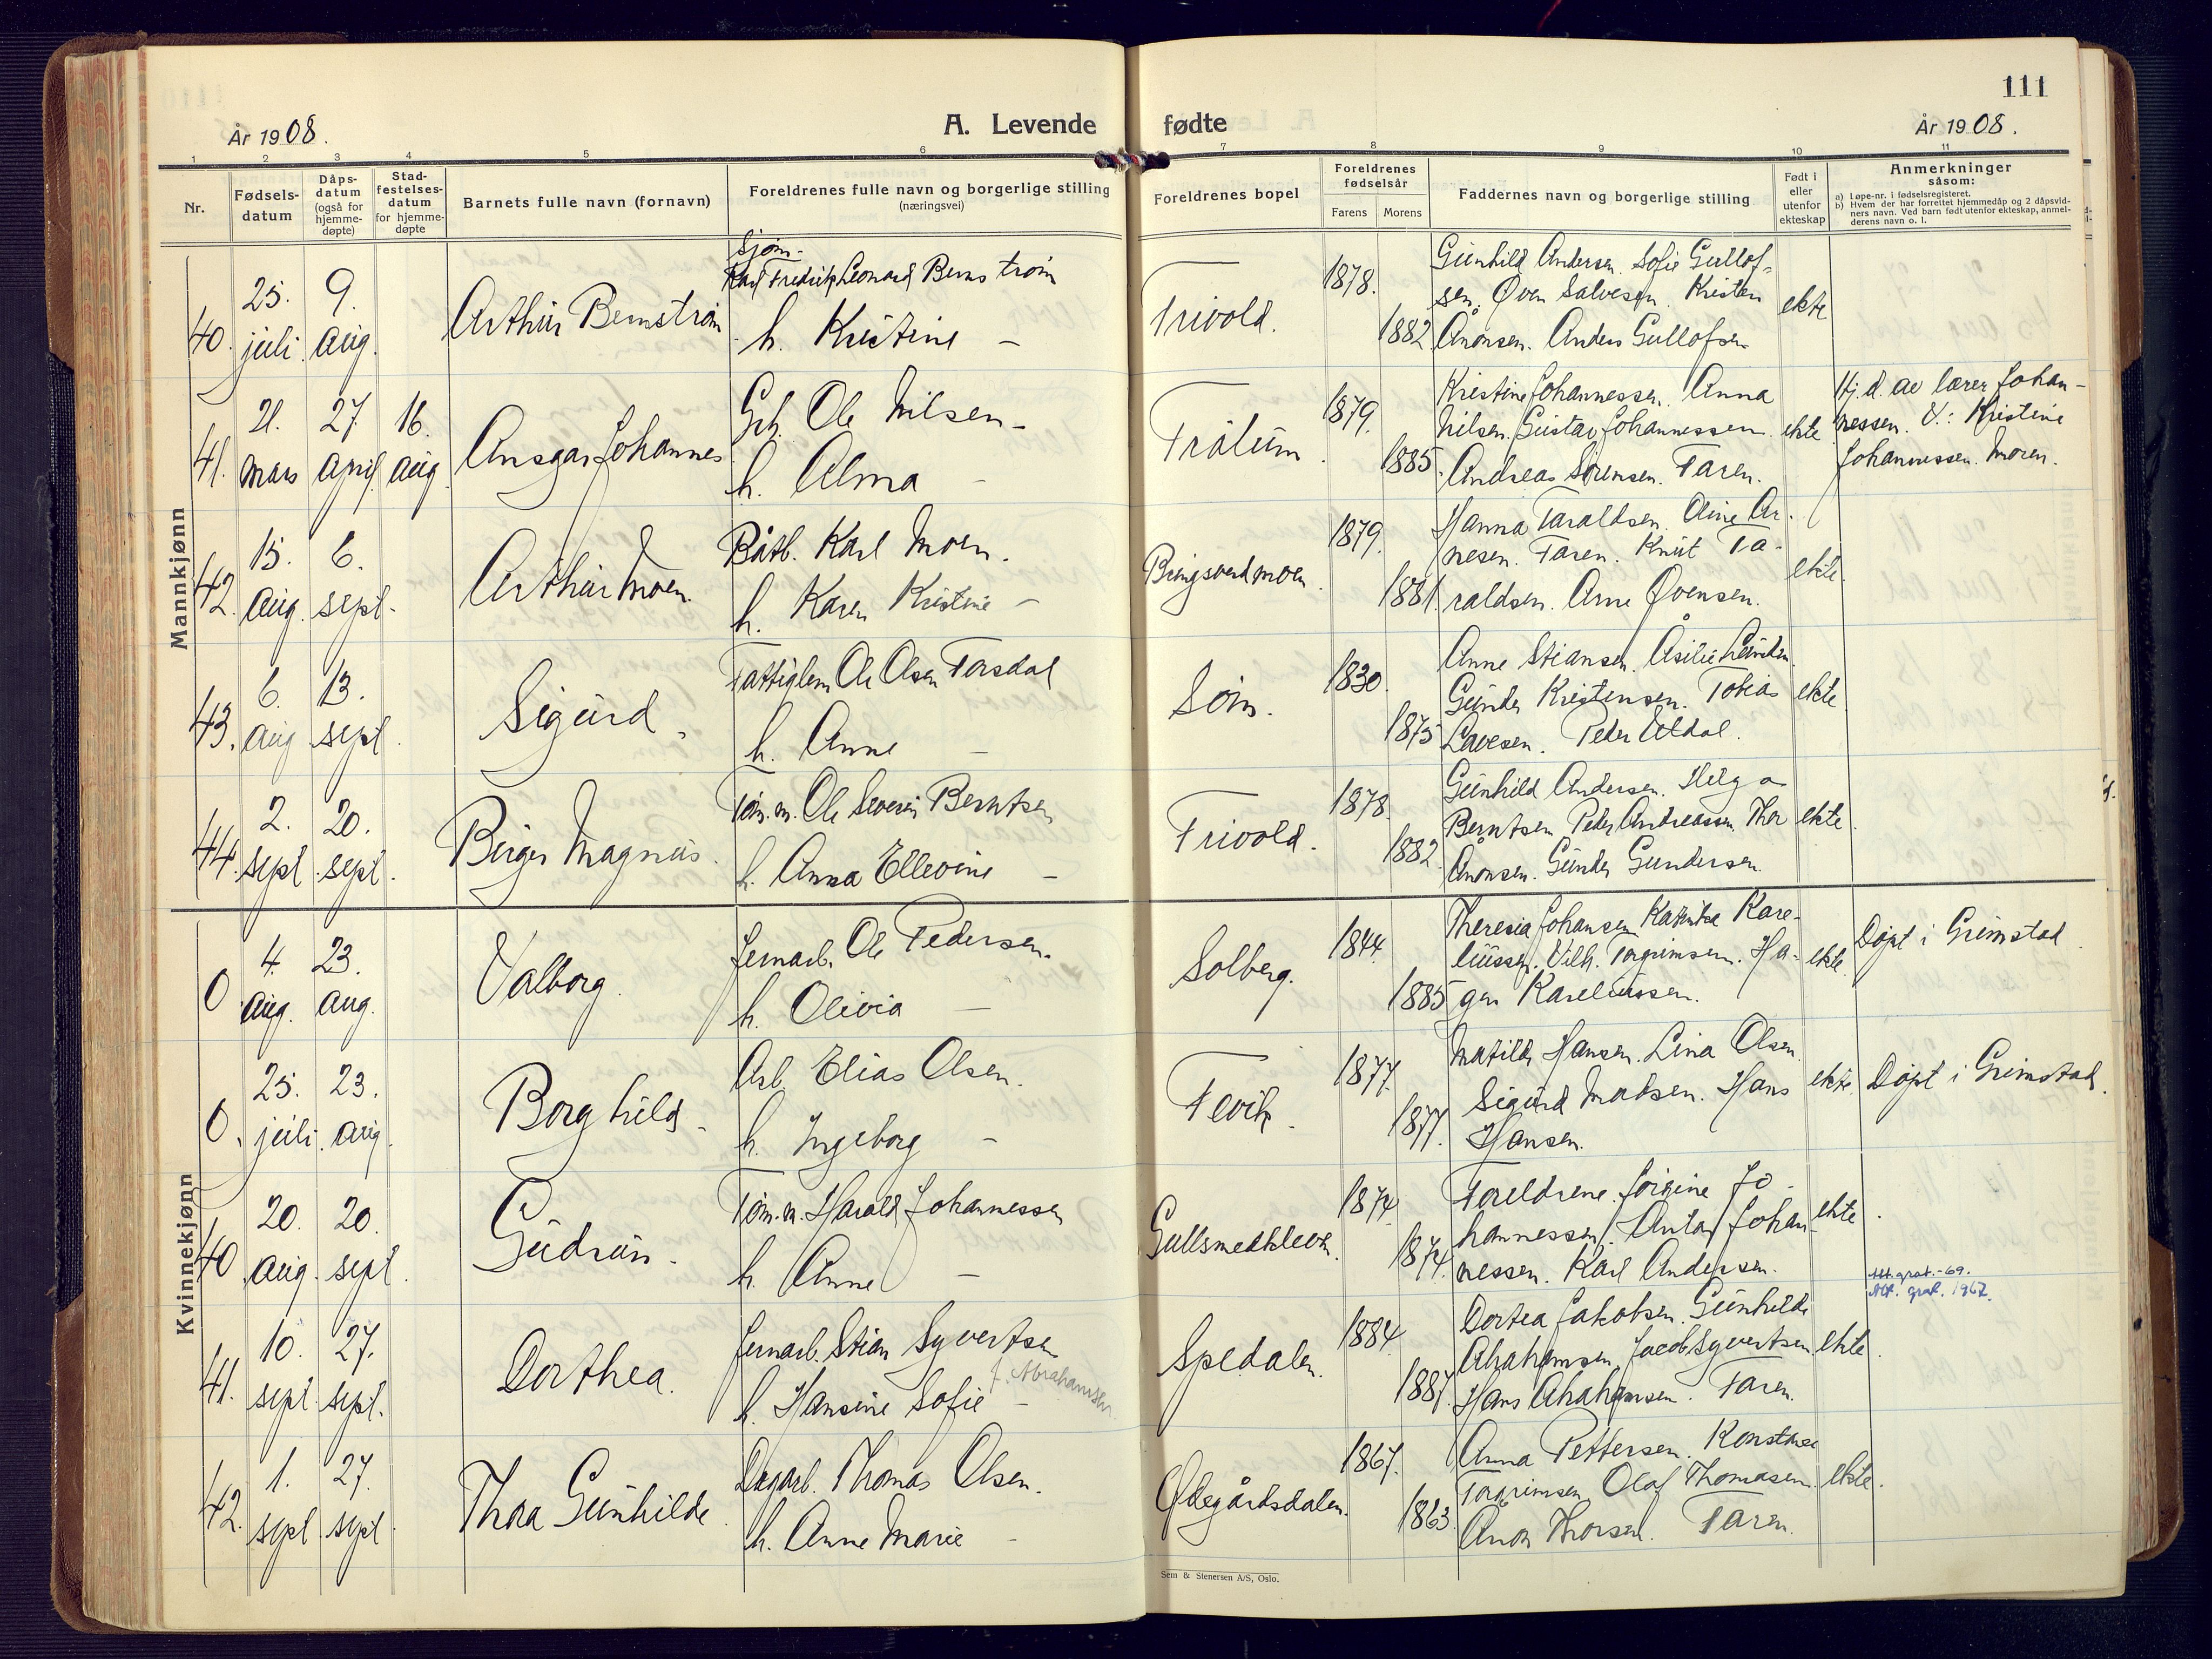 111
År 1908.
A. Levende fødte
År 1908.
1 2 3 4 5 6 7 8 9 10 11
Nr.
Fødsels-
datum
Dåps-
datum
(også for
hjemme-
døpte)
Stad-
festelses-
datum
for hjemme-
døpte
Barnets fulle navn (fornavn)
Foreldrenes fulle navn og borgerlige stilling
(næringsvei)
Foreldrenes bopel
Foreldrenes
fødselsår
Farens Morens
Faddernes navn og borgerlige stilling
Født i
eller
utenfor
ekteskap
Anmerkninger
såsom:
a) Løpe-nr. i fødselsregisteret.
b) Hvem der har forrettet hjemmedåp og 2 dåpsvid-
ners navn. Ved barn født utenfor ekteskap, anmel-
derens navn o. l.
Mannkjønn
40.
25.
juli
9.
aug.
Arthur Bernstrøm
Sjøm.
Karl Fredrik Leonard Bernstrøm
h. Kristine –
Trivold.
1878.
1882
Gunhild Andersen. Sofie Gullof-
sen. Øven Salvesen. Kristen
Ånonsen. Anders Gullofsen
ekte
41.
21.
mars
27.
april
16.
aug
Ansgar Johannes
Grb. Ole Nilsen –
h. Alma –
Trålum
1879.
1885.
Kristine Johannessen. Anna
Nilsen. Gustav Johannessen.
Andreas Sørensen. Faren.
ekte
Hj.d. av lærer Johan-
nessen. V.: Kristine
Johannessen. Moren.
42.
15.
aug.
6.
sept.
Arthur Moen.
Båtb. Karl Moen.
h. Karen Kristine –
Bringsverdmoen.
1879.
1881.
Hanna Taraldsen. Oline Ar-
nesen. Faren. Knut Ta-
raldsen. Arne Øvensen.
ekte.
43.
6.
aug
13.
sept
Sigurd.
Fattiglem Ole Olsen Torsdal
h. Anne –
Søm.
1830.
1875
Anne Stiansen.
Gunder Kristensen. Tobias
Lavesen. Peder Uldal.
ekte
44.
2.
sept
20.
sept.
Birger Magnus.
Tøm.m. Ole Severin Berntsen
h. Anna Ellevine –
Trivold.
1878.
1882
Gunhild Andersen. Helga
Berntsen. Peder Andreassen. Ther
Ånonsen. Gunder Gundersen.
ekte.
Kvinnekjønn
0.
4.
aug.
23.
aug.
Valborg.
Jernarb. Ole Pedersen.
h. Olivia –
Solberg.
1844.
1885
Theresia Johansen. Kathinka Kare-
liussen. Vilh. Torgrimsen. Ha-
gen Kareliussen.
ekte.
Døpt i Grimstad.
0.
25.
juli.
23.
aug.
Borghild.
Arb. Elias Olsen.
h. Ingeborg –
Fevik.
1877.
1877.
Matilde Hansen. Lina Olsen.
Sigurd Madsen. Hans
Hansen.
ekte.
Døpt i Grimstad.
40
20.
aug.
20.
sept.
Gudrun.
Tøm.m. Harald Johannessen
h. Anne –
Gullsmedkleven.
1874
1874.
Foreldrene. Jørgine Jo-
hannessen. Anton Johan-
nessen. Karl Andersen.
ekte.
41.
10.
sept.
27.
sept.
Dorthea.
Jernarb. Stian Syvertsen
h. Hansine Sofie –
f. Abrahamsen.
Spedalen.
1884.
1887.
Dortea Jakobsen. Gunhilde
Abrahamsen. Jacob Syvertsen.
Hans Abrahamsen. Faren.
ekte.
Att. grat. -69.
Att. grat. 1967.
42.
1.
sept.
27.
sept.
Thea Gunhilde.
Dagarb. Thomas Olsen.
h. Anne Marie –
Ødegårdsdalen.
1867.
1863.
Anna Pettersen. Konstanse
Torgrimsen. Olaf Thomasen.
Anon Thorsen. Faren.
ekte.
Sem & Stenersen A/S, Oslo.